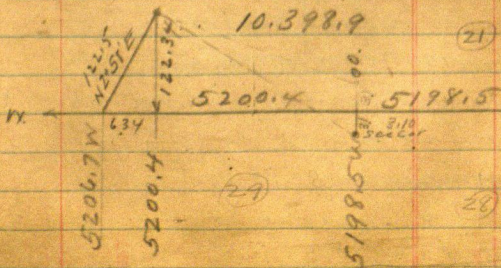 10.398.9
21
122.5
N 2°51' E
122.34
5200.4
5198.5
W.
6.34
2.10
Sec Cor
5206.7 W
5200.4
29
5198.5 W
28